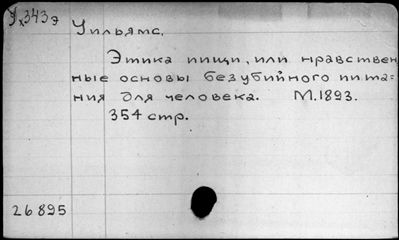 У,343э
Уильямс.
Этика пищи, или нравствен
ные основы безубийного пита=
ния для человека. М.1893.
354 стр.
26895